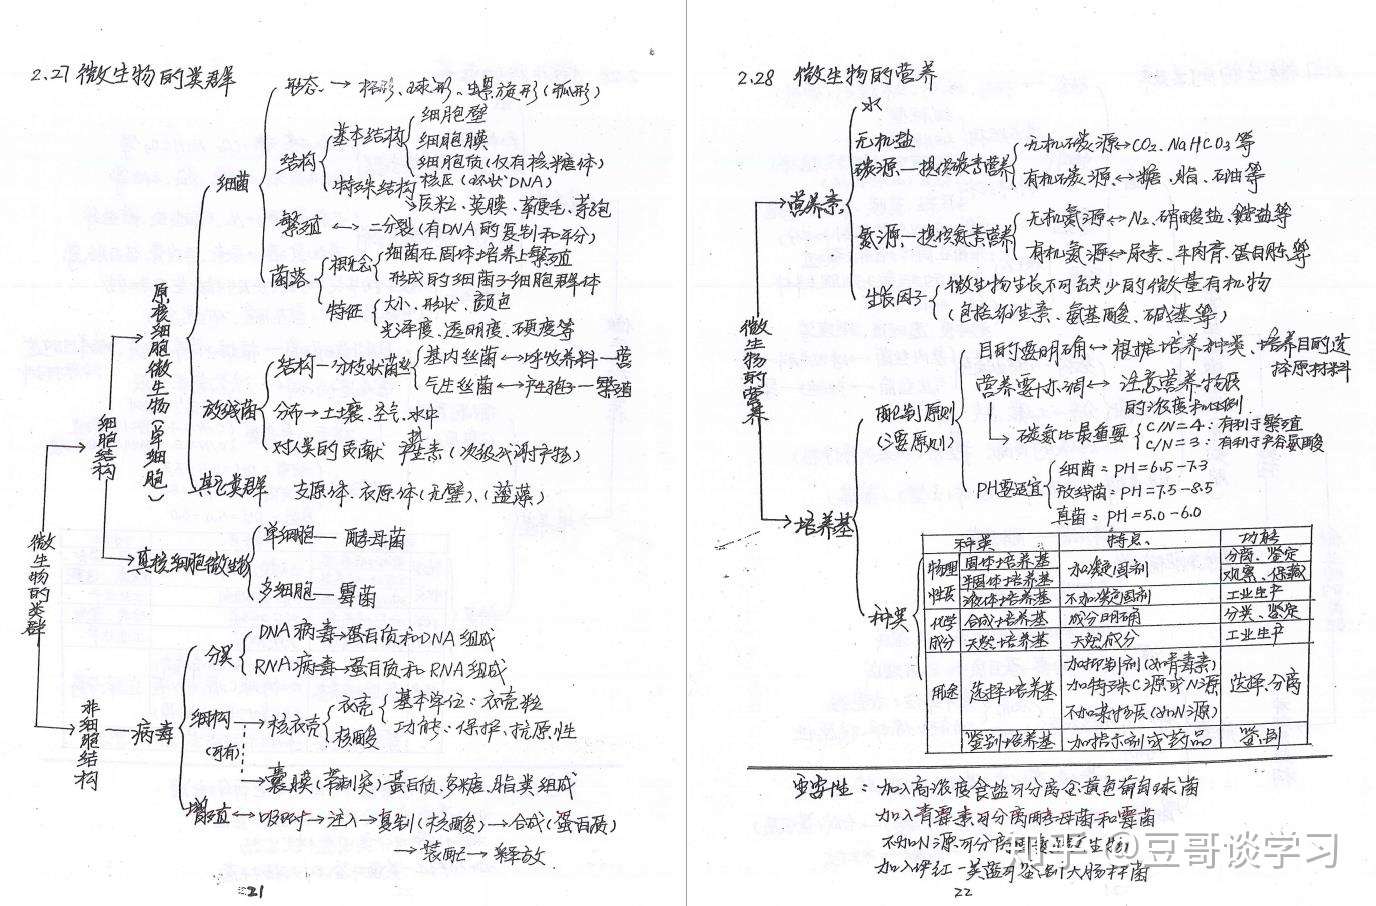 2.27 微生物的类群
微生物的类群
细胞结构
原核细胞微生物(单细胞)
细菌
形态 → 杆形、球形、螺旋形(弧形)
结构
基本结构
细胞壁
细胞膜
细胞质(仅有核糖体)
核区(环状DNA)
特殊结构
→质粒、荚膜、鞭毛、芽孢
繁殖 ↔ 二分裂(有DNA的复制和平分)
菌落
概念
细菌在固体培养上繁殖
形成的细菌子细胞群体
特征
大小、形状、颜色
光泽度、透明度、硬度等
放线菌
结构—分枝状菌丝
基内丝菌↔呼吸养料—营
气生丝菌↔产生孢子—繁殖
分布→土壤、空气、水中
对人类的贡献 抗生素(次级代谢产物)
其它类群 支原体、衣原体(无壁)、(蓝藻)
真核细胞微生物
单细胞— 酵母菌
多细胞— 霉菌
非细胞结构
病毒
分类
DNA病毒→蛋白质和DNA组成
RNA病毒→蛋白质和RNA组成
结构
(可有)
→核衣壳
衣壳
基本单位：衣壳粒
功能：保护、抗原性
核酸
→囊膜(荷制突) 蛋白质、多糖、脂类组成
增殖 ↔吸附→注入→复制(核酸)→合成(蛋白质)
→装配→释放
21
2.28 微生物的营养
微生物的营养
营养素
水
无机盐
碳源—提供碳素营养
无机碳源↔CO₂、NaHCO₃等
有机碳源↔糖、脂、石油等
氮源—提供氮素营养
无机氮源↔N₂、硝酸盐、铵盐等
有机氮源↔尿素、牛肉膏、蛋白胨等
生长因子
微生物生长不可缺少的微量有机物
(包括维生素、氨基酸、碱基等)
培养基
配制原则
(三要原则)
目的要明确↔根据培养种类、培养目的选
择原材料
营养要协调↔注意营养物质
的浓度和比例
→碳氮比最重要
C/N=4：有利于繁殖
C/N=3：有利于产谷氨酸
PH要适宜
细菌：PH=6.5-7.3
放线菌：PH=7.5-8.5
真菌：PH=5.0-6.0
种类
种类 特点 功能
物理性质 固体培养基 加凝固剂 分离、鉴定
半固体培养基 观察、保藏
液体培养基 不加凝固剂 工业生产
化学成分 合成培养基 成分明确 分类、鉴定
天然培养基 天然成分 工业生产
用途 选择培养基 加抑制剂(如青霉素) 选择、分离
加特殊C源或N源
不加某物质(如N源)
鉴别培养基 加指示剂或药品 鉴别
重要性：加入高浓度食盐可分离金黄色葡萄球菌
加入青霉素可分离酵母菌和霉菌
不加N源可分离固氮微生物
加入伊红—美蓝可鉴别大肠杆菌
22
知乎 @豆哥谈学习